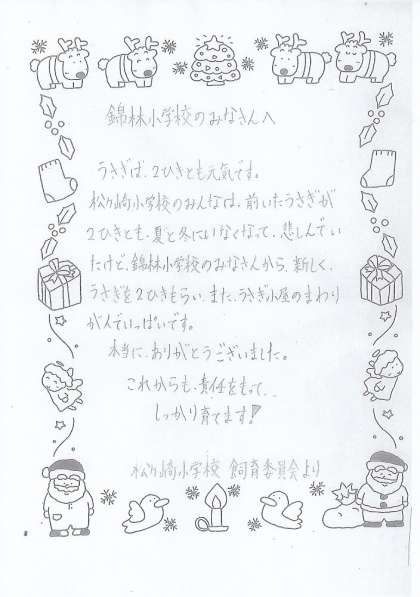 錦林小学校のみなさんへ
うさぎは、2ひきとも元気です。
松ヶ崎小学校のみんなは、前いたうさぎが
2ひきとも、夏と冬にいなくなって、悲しんでい
たけど、錦林小学校のみなさんから、新しく、
うさぎを2ひきもらい、また、うさぎ小屋のまわり
がんでいっぱいです。
本当に、ありがとうございました。
これからも、責任をもって、
しっかり育てます!
松ヶ崎小学校 飼育委員会より